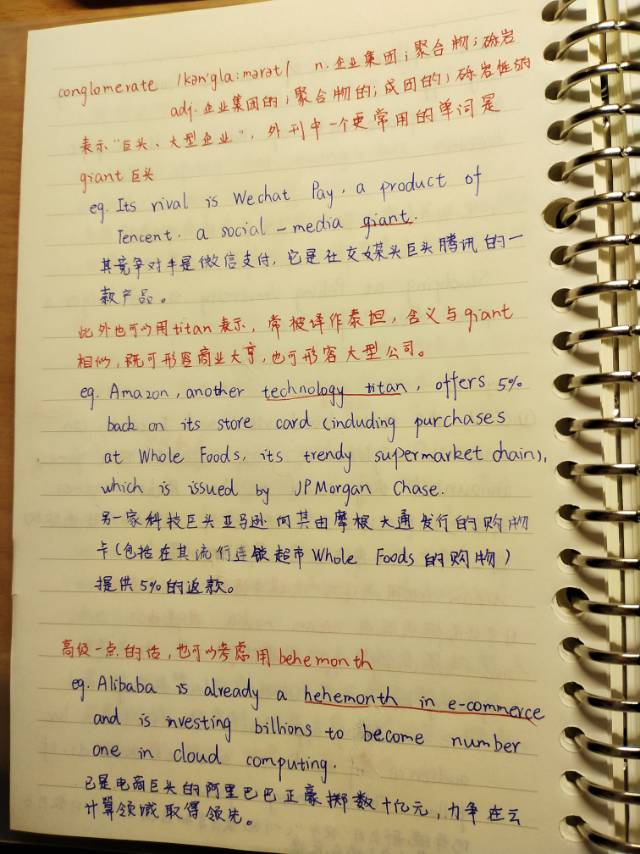 conglomerate /kən'glɑ:mərət/ n.企业集团；聚合物；砾岩
adj.企业集团的；聚合物的；成团的；砾岩性的
表示"巨头、大型企业"，外刊中一个更常用的单词是
giant 巨头
eg. Its rival is Wechat Pay, a product of
Tencent, a social-media giant.
其竞争对手是微信支付，它是社交媒头巨头腾讯的一
款产品。
此外也可以用titan表示，常被译作泰坦，含义与giant
相似，既可形容商业大亨，也可形容大型公司。
eg. Amazon, another technology titan, offers 5%
back on its store card (including purchases
at Whole Foods, its trendy supermarket chain),
which is issued by JPMorgan Chase.
另一家科技巨头亚马逊向其由摩根大通发行的购物
卡(包括在其流行连锁超市Whole Foods的购物)
提供5%的返款。
高级一点的话，也可以考虑用behemonth
eg. Alibaba is already a hehemonth in e-commerce
and is investing billions to become number
one in cloud computing.
已是电商巨头的阿里巴巴正豪掷数十亿元，力争在云
计算领域取得领先。